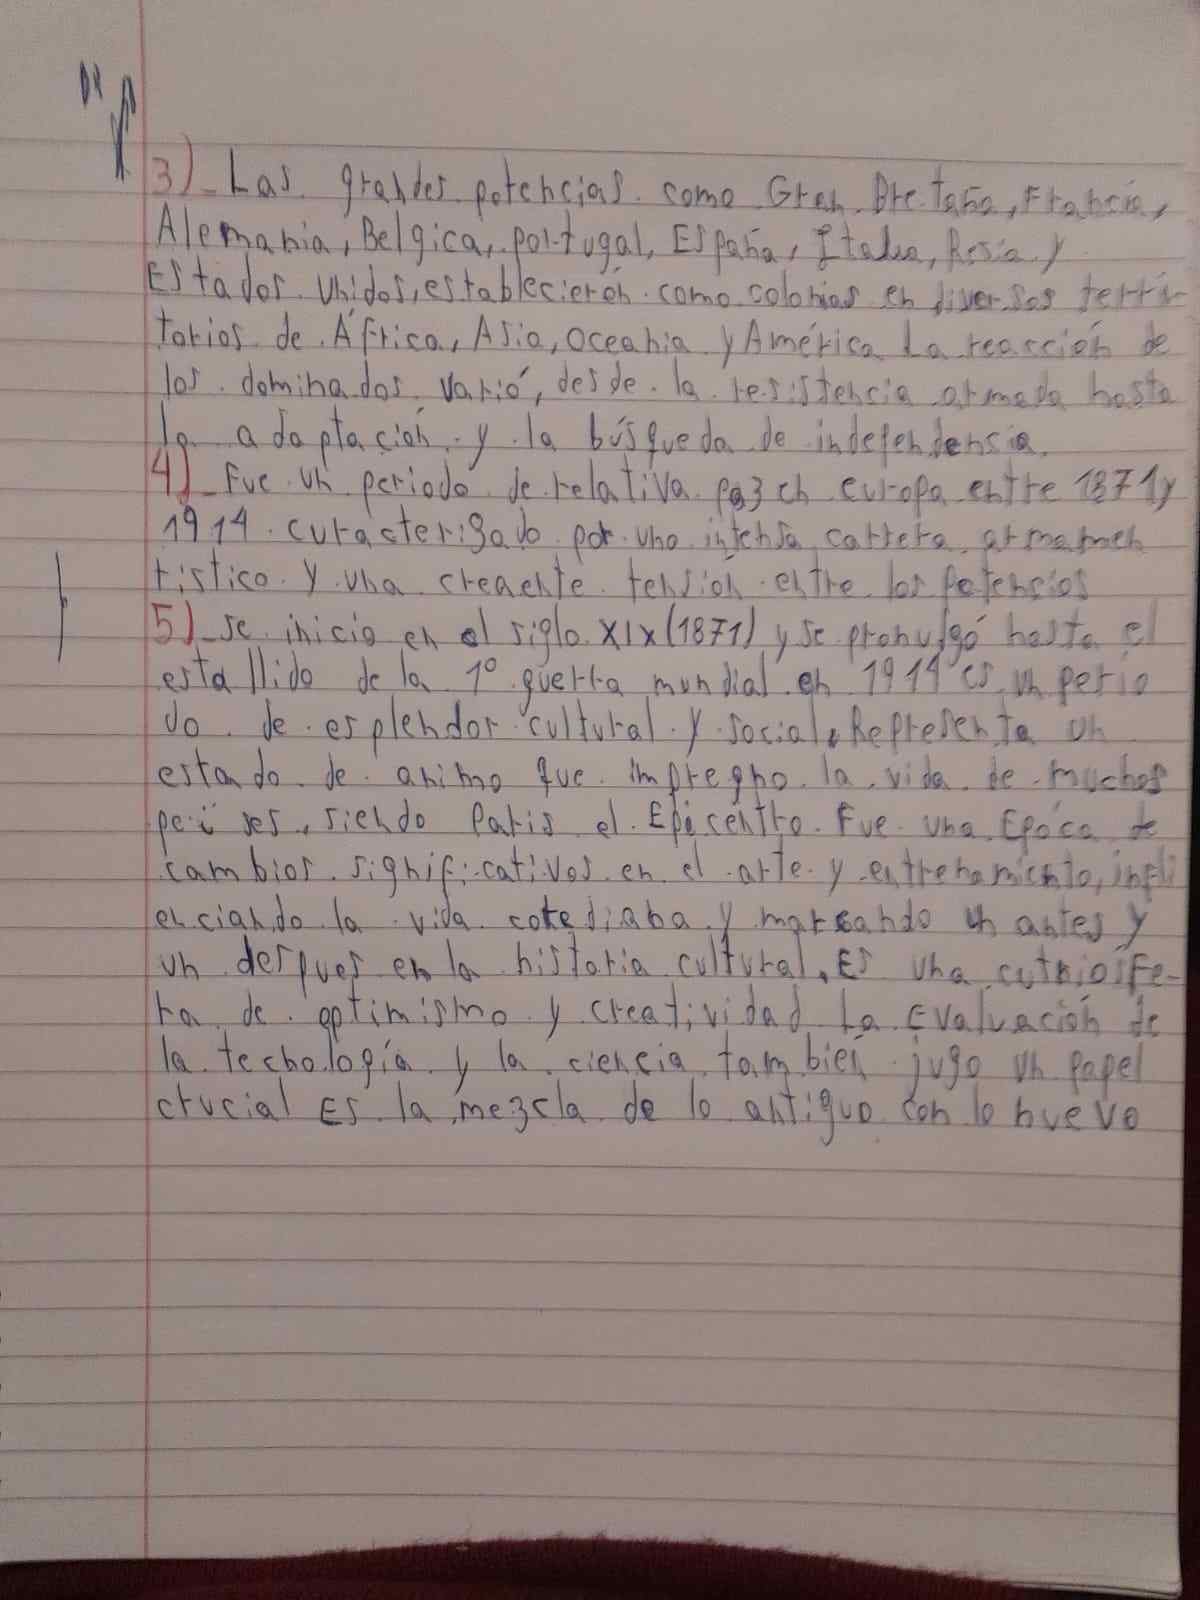 3)_ Las grandes potencias como Gran Bretaña, Francia,
Alemania, Belgica, portugal, España, Italia, Rusia y
Estados Unidos, establecierón como colonias en diversos terri-
torios de África, Asia, Oceania y América La reacción de
los dominados varió, desde la resistencia armada hasta
la adaptación y la búsqueda de independensia.
4)_ Fue un periodo de relativa paz en europa entre 1871 y
1914 curacterizado por una intensa carrera armamen
tistico y una creaente tensión entre los potencios
5)_ se inicio en el siglo XIX (1871) y se pronulgó hasta el
estallido de la 1° guerra mundial en 1914 es un perio
do de esplendor cultural y social. Representa un
estado de animo que impregno la vida de muchos
paises, siendo Paris el Epicentro. Fue una Epoca de
cambios significativos en el arte y entrenamiento, influ
enciando la vida cotediana y marcando un antes y
un despues en la historia cultural. Es una
ra de optimismo y creatividad La Evaluación de
la tecnología y la ciencia también jugo un papel
crucial Es la mezcla de lo antiguo con lo nuevo